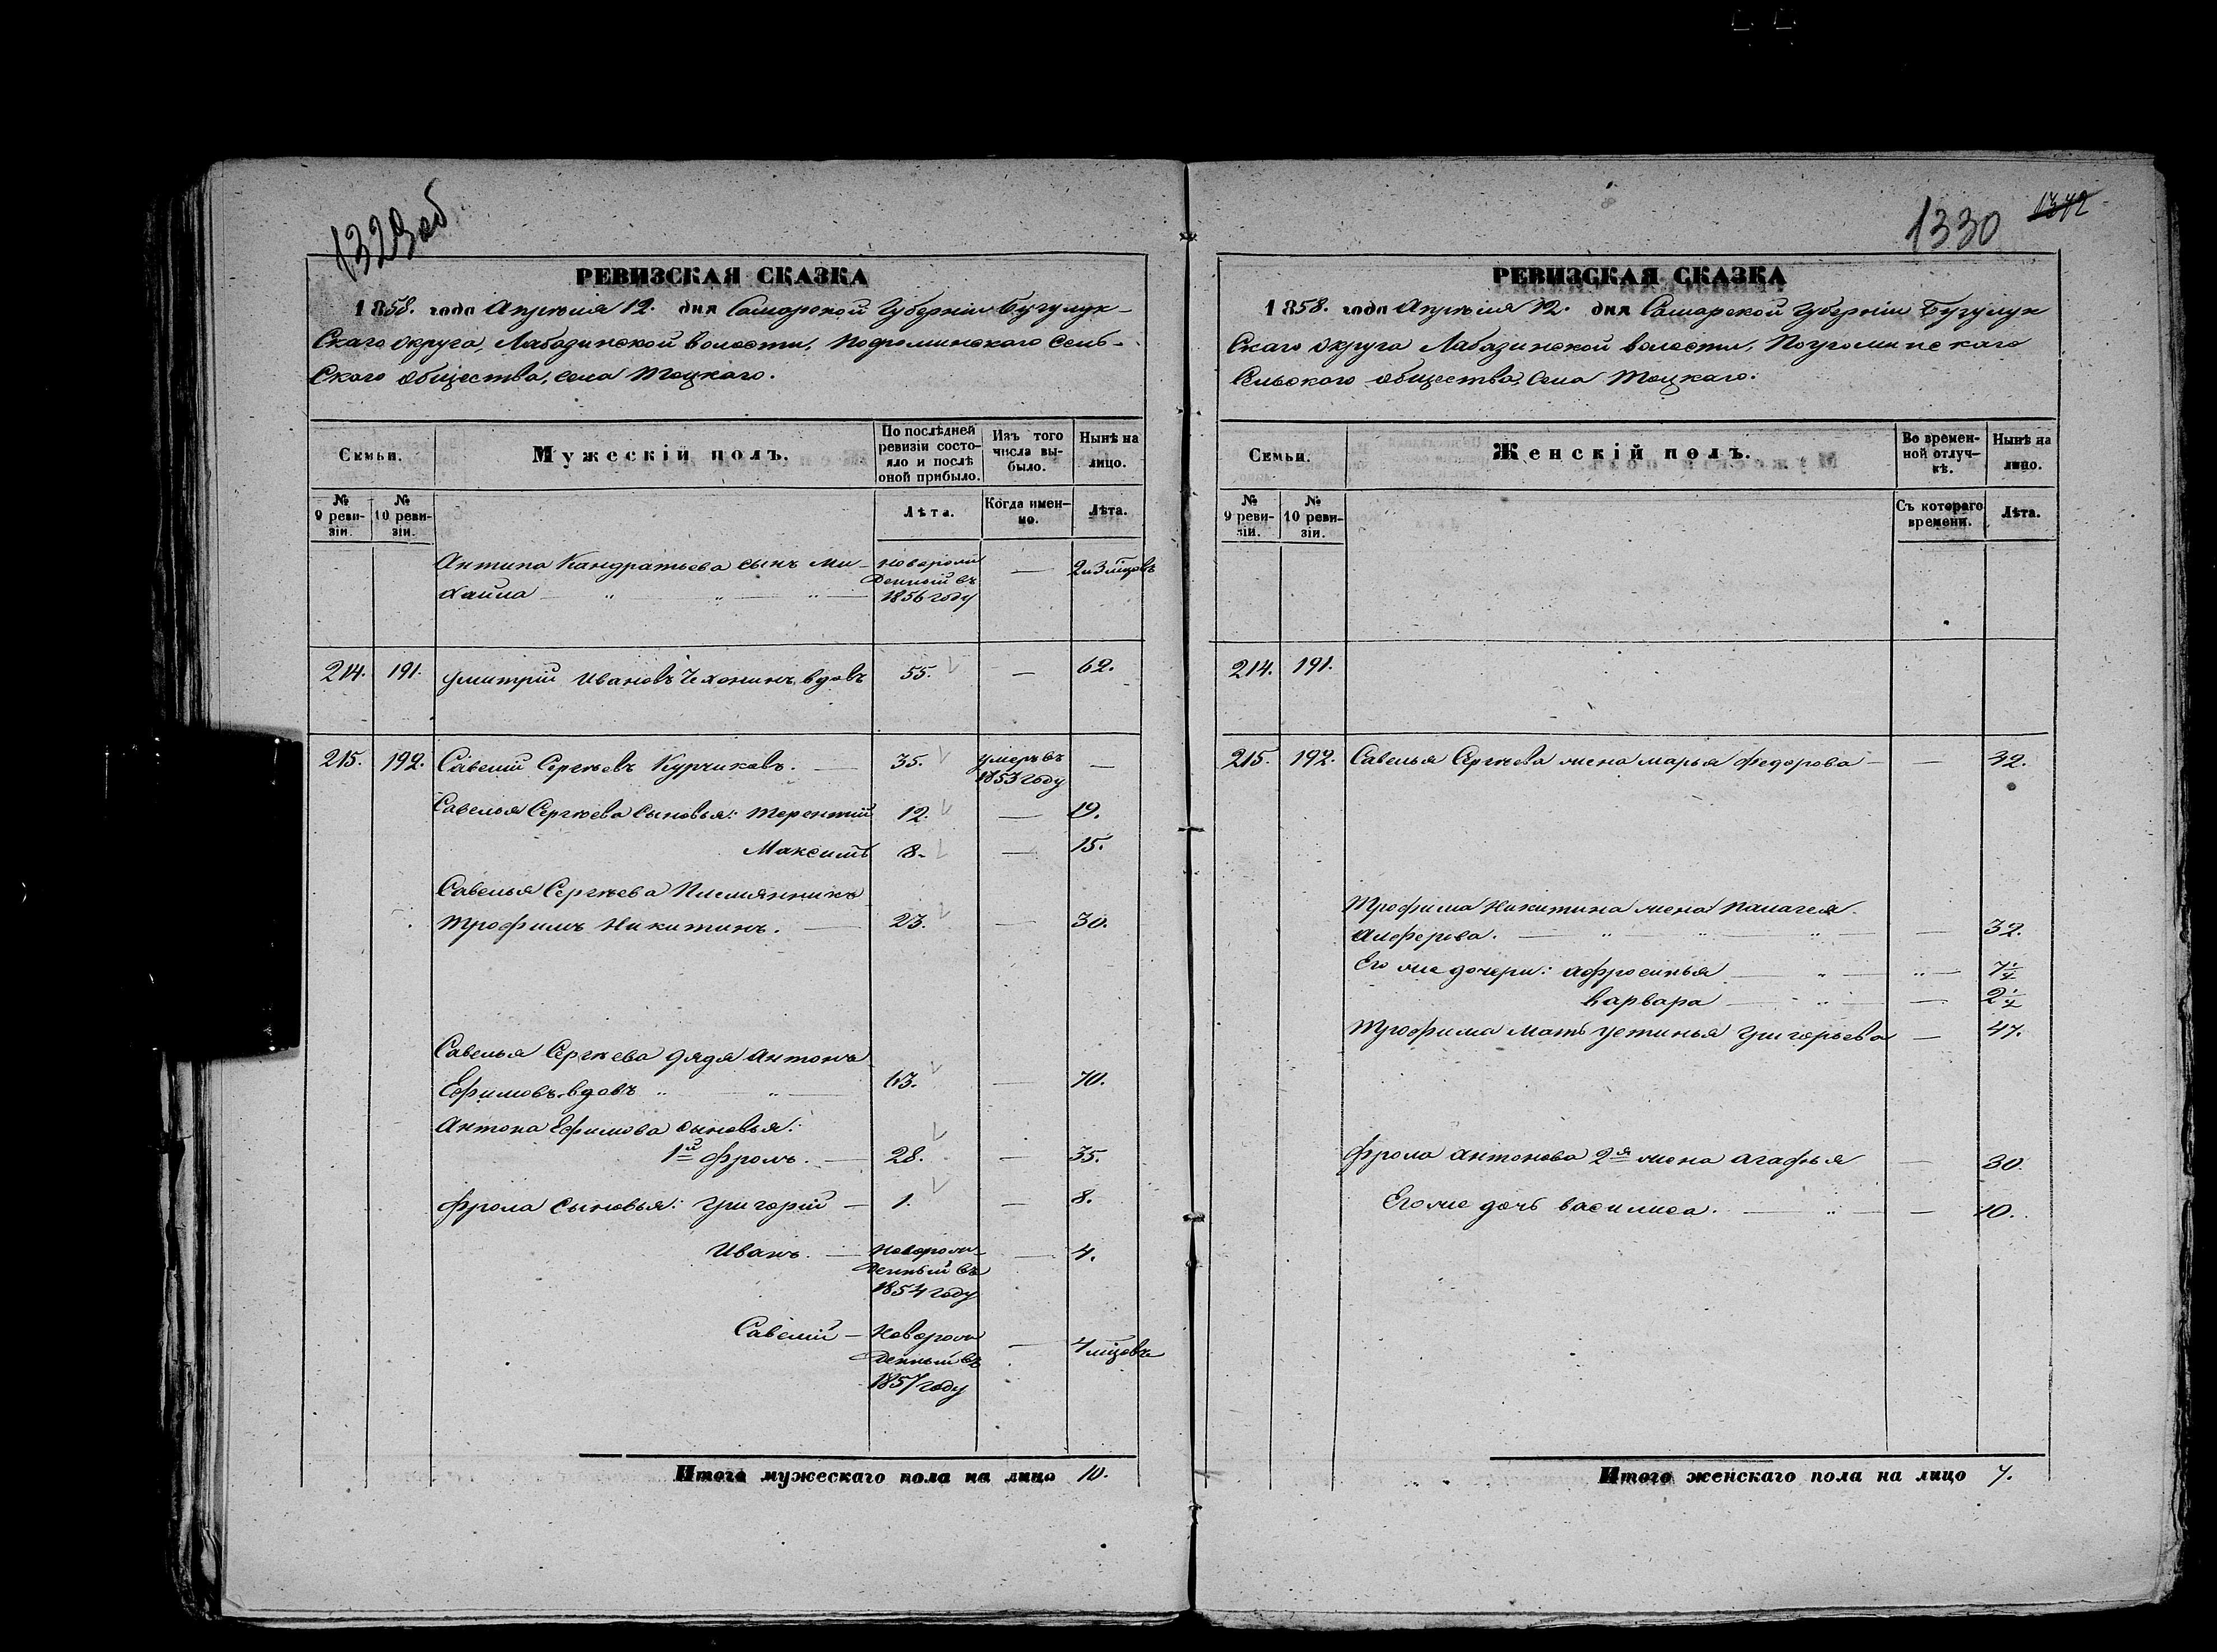 1329 об
РЕВИЗСКАЯ СКАЗКА
1858. года Апрѣля 12. дня Самарской Губерніи Бугулук-
Скаго округа, Лабазинской волости, Погроминскаго Сель-
Скаго общества, села Тоцкаго.
Семьи.
Мужескій полъ.
По послѣдней ревизіи состояло и послѣ оной прибыло.
Изъ того числа выбыло.
Нынѣ на лицо.
№ 9 ревизіи.
№ 10 ревизіи.
Лѣта.
Когда именно.
Лѣта.
Антипа Кандратьева сынъ Ми-
хаила
новорож
денный въ
1856 году
—
2 и 3 мцовъ
214. 191. Дмитрій Ивановъ Чехонинъ вдовъ 55. — 62.
215. 192. Савелій Сергѣевъ Курчиковъ. — 35. умеръ въ 1853 году —
Савелья Сергѣева сыновья: Терентий 12. — 19.
Максимъ 8. — 15.
Савелья Сергѣева племянникъ
Трофимъ Никитинъ. — 23. — 30.
Савелья Сергѣева дядя Антонъ
Ефимовъ вдовъ 63. — 70.
Антона Ефимова сыновья:
1й Фролъ. — 28. — 35.
Фрола сыновья: Григорій — 1. — 8.
Иванъ. — Новорож-
денный въ
1854 году
— 4.
Савелій — Новорож
денный въ
1857 году
— 4 мцовъ
Итого мужескаго пола на лицо 10.
1330 1342
РЕВИЗСКАЯ СКАЗКА
1858. года Апрѣля 12. дня Самарской Губерніи Бугулук
Скаго округа Лабазинской волости, Погроминскаго
Сельского общества, села Тоцкаго.
Семьи.
Женскій полъ.
Во временной отлучкѣ.
Нынѣ на лицо.
№ 9 ревизіи.
№ 10 ревизіи.
Съ котораго времени.
Лѣта.
214. 191.
215. 192. Савелья Сергѣева жена Марья Федорова — — 42.
Трофима Никитина жена Палагея
Алферова. — — 32.
Его же дочери: Афросинья — — 7 1/4
Варвара — — 2 1/4
Трофима мать Устинья Григорьева — 47.
Фрола Антонова 2я жена Агафья — 30.
Его же дочь Василиса. — — 10.
Итого женскаго пола на лицо 7.